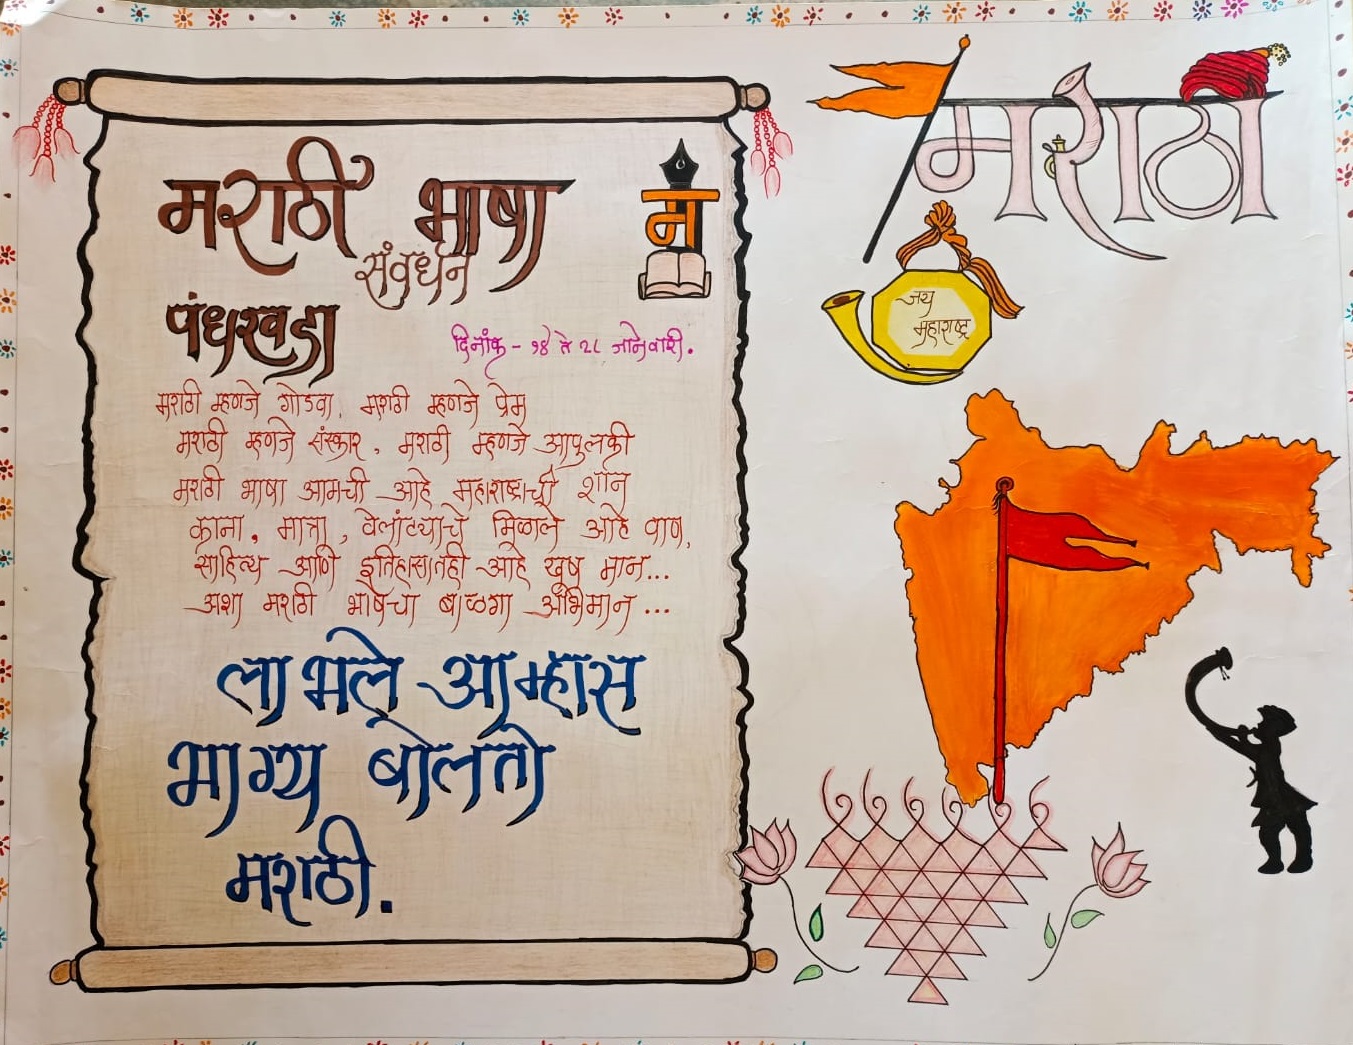 मराठी भाषा
संवर्धन
पंधरवडा
म
दिनांक - १४ ते २८ जानेवारी.
मराठी म्हणजे गोडवा, मराठी म्हणजे प्रेम
मराठी म्हणजे संस्कार, मराठी म्हणजे आपुलकी
मराठी भाषा आमची आहे महाराष्ट्राची शान
काना, मात्रा, वेलांट्याचे मिळाले आहे वाण,
साहित्य आणि इतिहासातही आहे खूप मान...
अशा मराठी भाषेचा बाळगा अभिमान...
लाभले आम्हास
भाग्य बोलतो
मराठी.
मराठी
जय
महाराष्ट्र